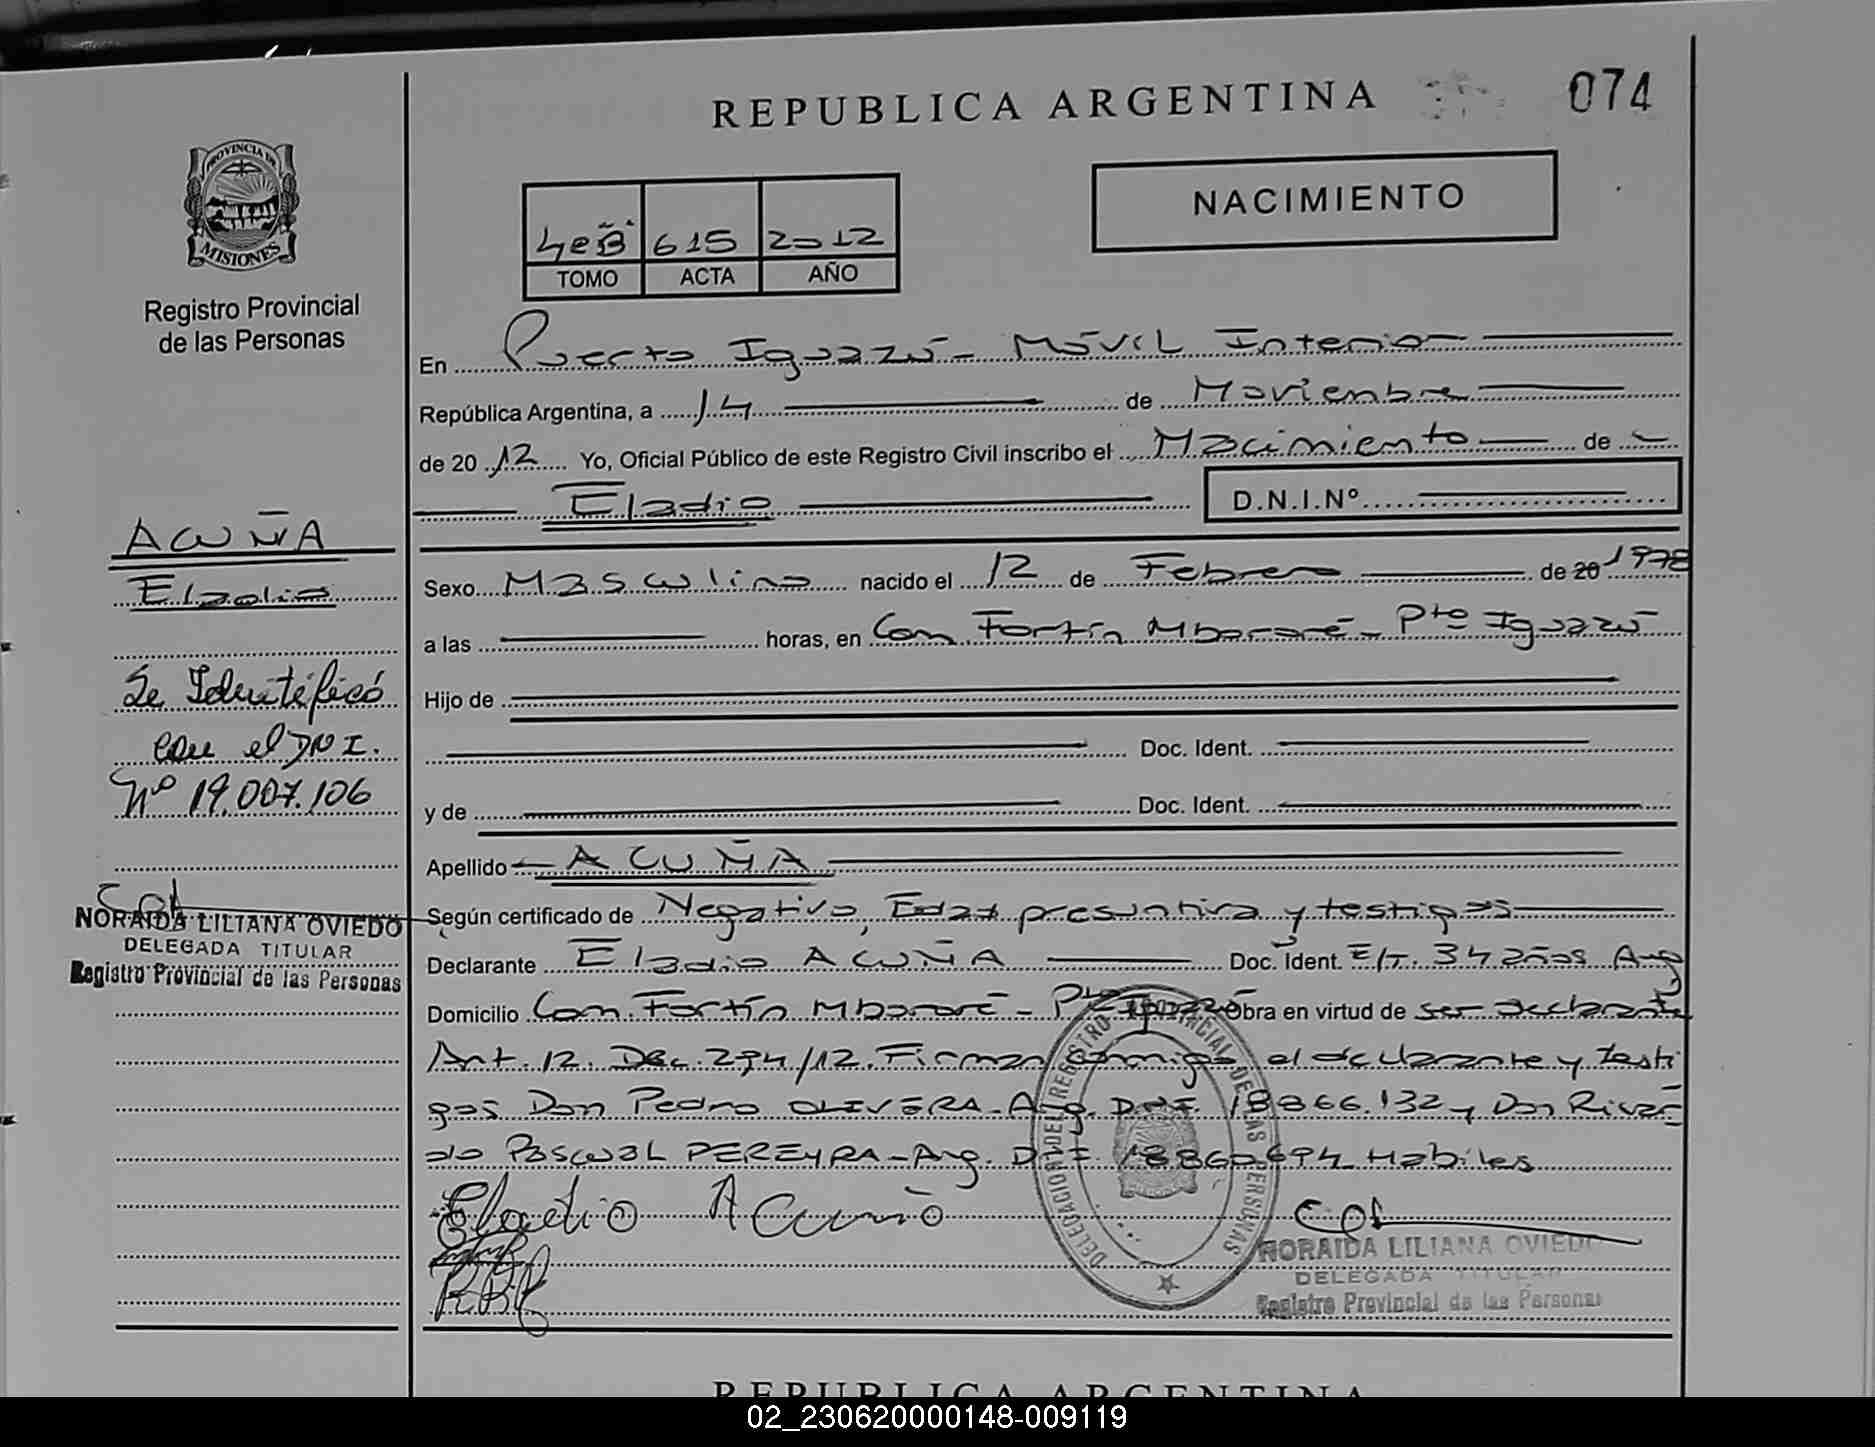 REPUBLICA ARGENTINA
074
PROVINCIA DE
MISIONES
Registro Provincial
de las Personas
NACIMIENTO
615 2012
TOMO ACTA AÑO
En Puerto Iguazú - Móvil Interior
República Argentina, a 14 de Noviembre
de 20 12 Yo, Oficial Público de este Registro Civil inscribo el Nacimiento de
Eladio D.N.I.Nº
Sexo Masculino nacido el 12 de Febrero de 20 1978
a las horas, en Com. Fortín Mbororé - Pto Iguazú
Hijo de
Doc. Ident.
y de Doc. Ident.
Apellido ACUÑA
Según certificado de Negativo, Edad presuntiva y testigos
Declarante Eladio ACUÑA Doc. Ident. E/T. 34 años Arg
Domicilio Com. Fortín Mbororé - Pto Iguazú Obra en virtud de ser declarante
Art. 12. Dec. 294/12. Firman conmigo el declarante y testi
gos Don Pedro OLIVERA - Arg. D.N.I. 18866.132 y Don Ricar
do Pascual PEREYRA - Arg. DNI 18860694 Habiles
Eladio Acuño
DELEGACION DEL REGISTRO PROVINCIAL DE LAS PERSONAS
NORAIDA LILIANA OVIEDO
DELEGADA TITULAR
Registro Provincial de las Personas
ACUÑA
Eladio
Se Identificó
con el DNI.
Nº 19.007.106
NORAIDA LILIANA OVIEDO
DELEGADA TITULAR
Registro Provincial de las Personas
REPUBLICA ARGENTINA
02_230620000148-009119